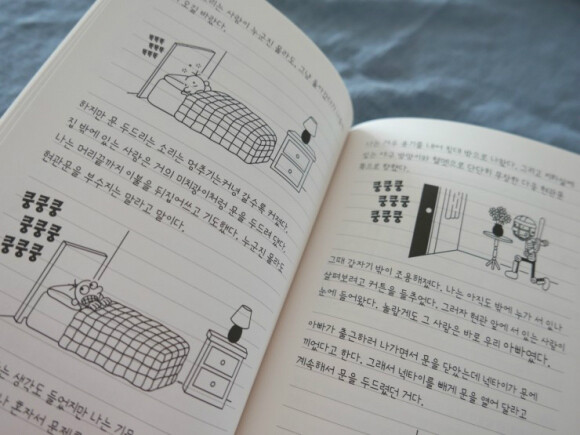 드리는 사람이 누군진 몰라도, 그냥 돌아갔으면
오길 바랐다.
쿵쿵쿵
쿵쿵쿵
쿵쿵쿵
하지만 문 두드리는 소리는 멈추기는커녕 갈수록 커졌다.
집 밖에 있는 사람은 거의 미치광이처럼 문을 두드려 댔다.
나는 머리끝까지 이불을 뒤집어쓰고 기도했다. 누군진 몰라도
현관문을 부수지는 말라고 말이다.
쿵쿵쿵
쿵쿵쿵
쿵쿵쿵
생각도 들었지만 나는 기운
혼자서 문제를
나는 겨우 용기를 내어 침대 밖으로 나왔다. 그리고
있는 야구 방망이와 헬멧으로 단단히 무장한 다음 현관문
쪽으로 향했다.
쿵쿵쿵
쿵쿵쿵
쿵쿵쿵
그때 갑자기 밖이 조용해졌다. 나는 아직도 밖에 누가 서 있나
살펴보려고 커튼을 들추었다. 그러자 현관 앞에 서 있는 사람이
눈에 들어왔다. 놀랍게도 그 사람은 바로 우리 아빠였다.
아빠가 출근하러 나가면서 문을 닫았는데 넥타이가 문에
끼었다고 한다. 그래서 넥타이를 빼게 문을 열어 달라고
계속해서 문을 두드렸던 거다.